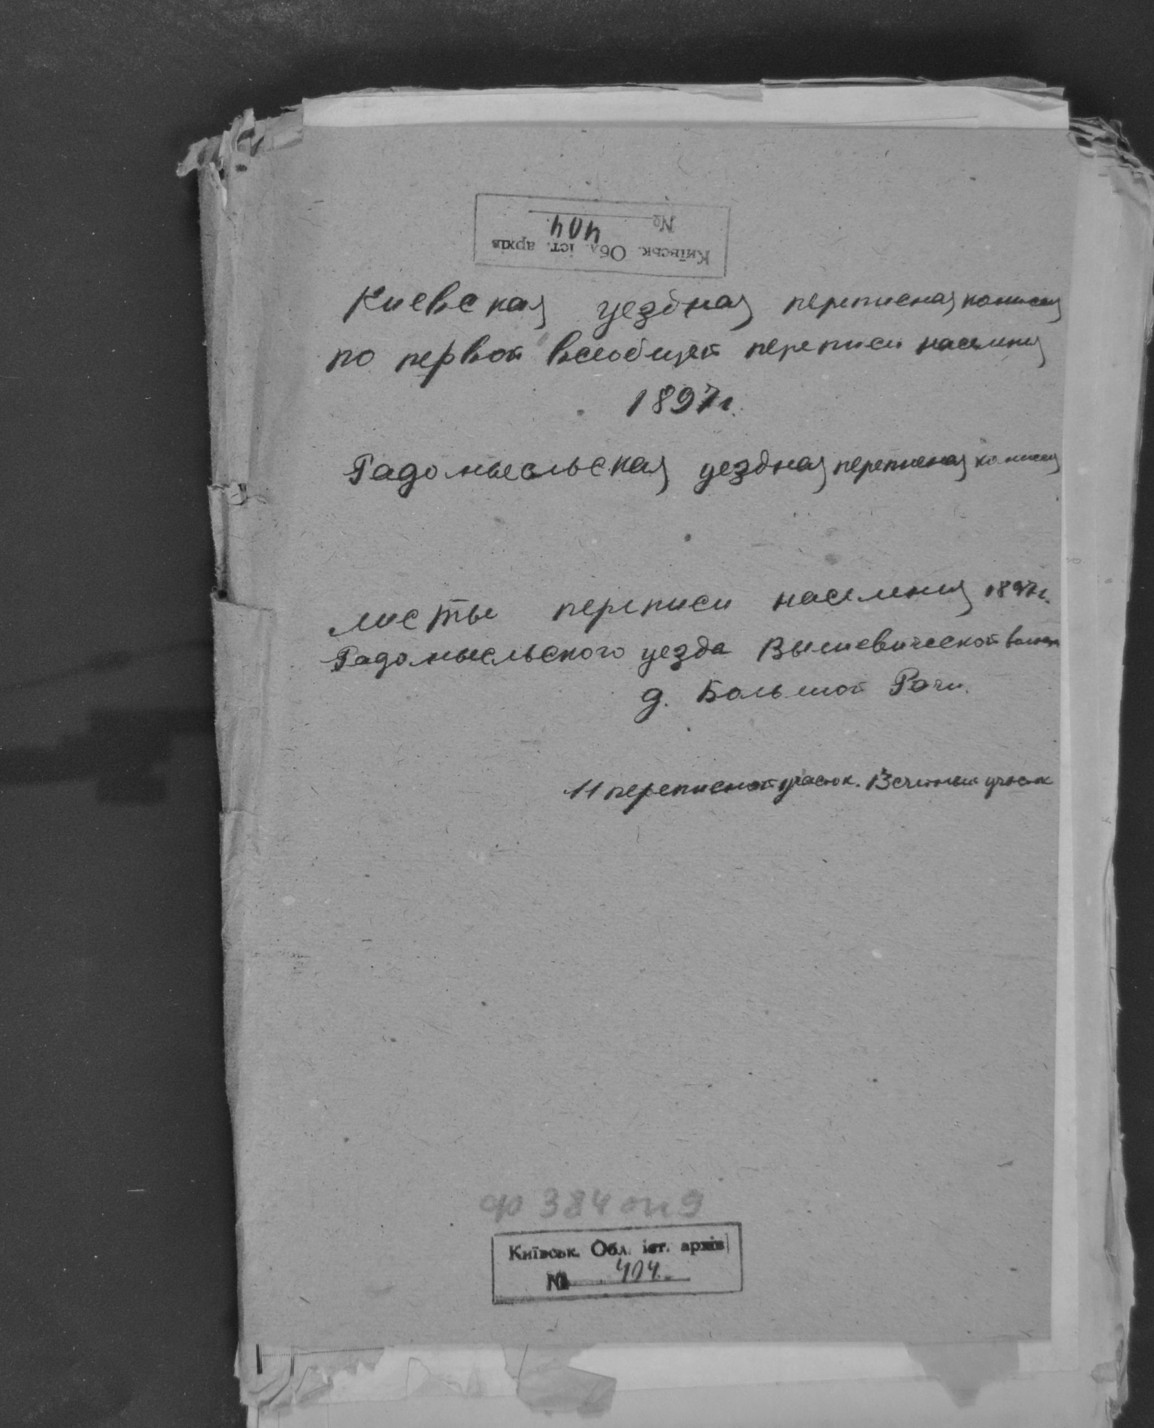 Київськ. Обл. іст. архів
№ 404.
Киевская уездная переписная комисия
по первой всеобщей переписи населения
1897 г.
Радомысльская уездная переписная комисия
листы переписи населения 1897 г.
Радомысльского уезда Вышевической волости
д. Большой Рачи.
11 переписной участок. В счетный участок
ф 384 оп 9
Київськ. Обл. іст. архів
№ 404.